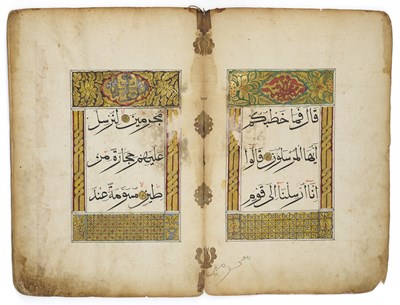 قال فما خطبكم
أيها المرسلون قالوا
إنا أرسلنا إلى قوم
مجرمين لنرسل
عليهم حجارة من
طين مسومة عند